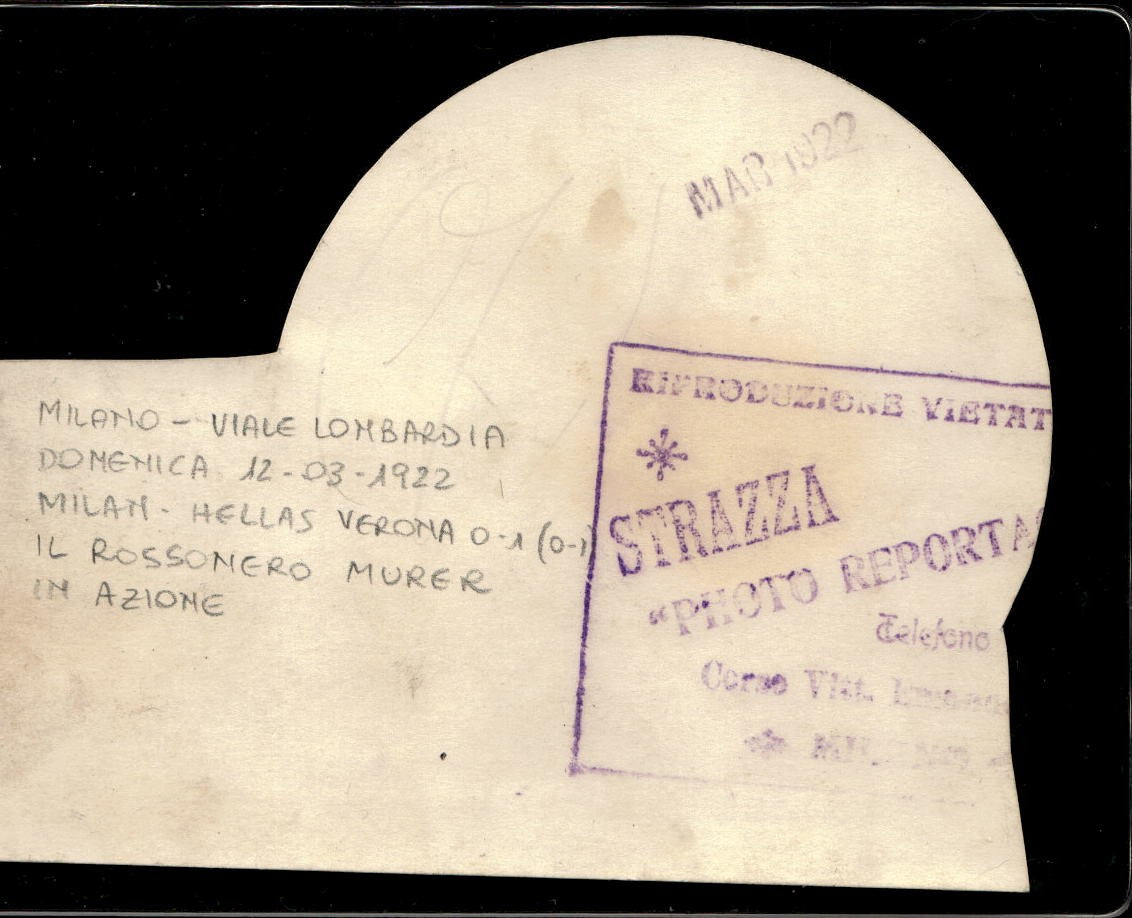 MAR 1922
MILANO - VIALE LOMBARDIA
DOMENICA 12-03-1922
MILAN - HELLAS VERONA 0-1 (0-1)
IL ROSSONERO MURER
IN AZIONE
RIPRODUZIONE VIETAT
STRAZZA
"PHOTO REPORTA
Telefono
Corso Vitt.
MILANO